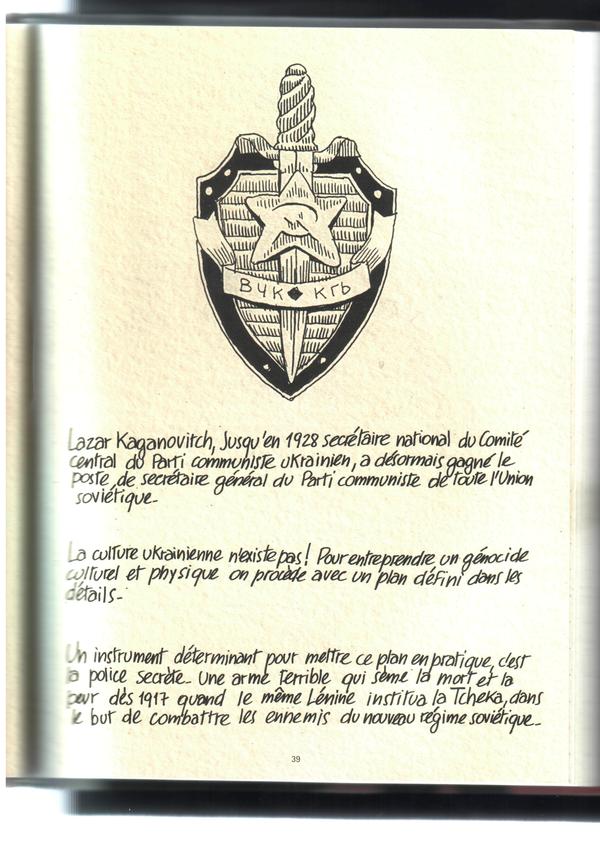 ВЧК КГЬ
Lazar Kaganovitch, Jusqu'en 1928 secrétaire national du Comité
central du Parti communiste ukrainien, a désormais gagné le
poste de secrétaire général du Parti communiste de toute l'Union
soviétique_
La culture ukrainienne n'existe pas! Pour entreprendre un génocide
culturel et physique on procède avec un plan défini dans les
détails_
Un instrument déterminant pour mettre ce plan en pratique, c'est
la police secrète_ Une arme terrible qui sème la mort et la
peur dès 1917 quand le même Lénine institua la Tcheka, dans
le but de combattre les ennemis du nouveau régime soviétique_
39